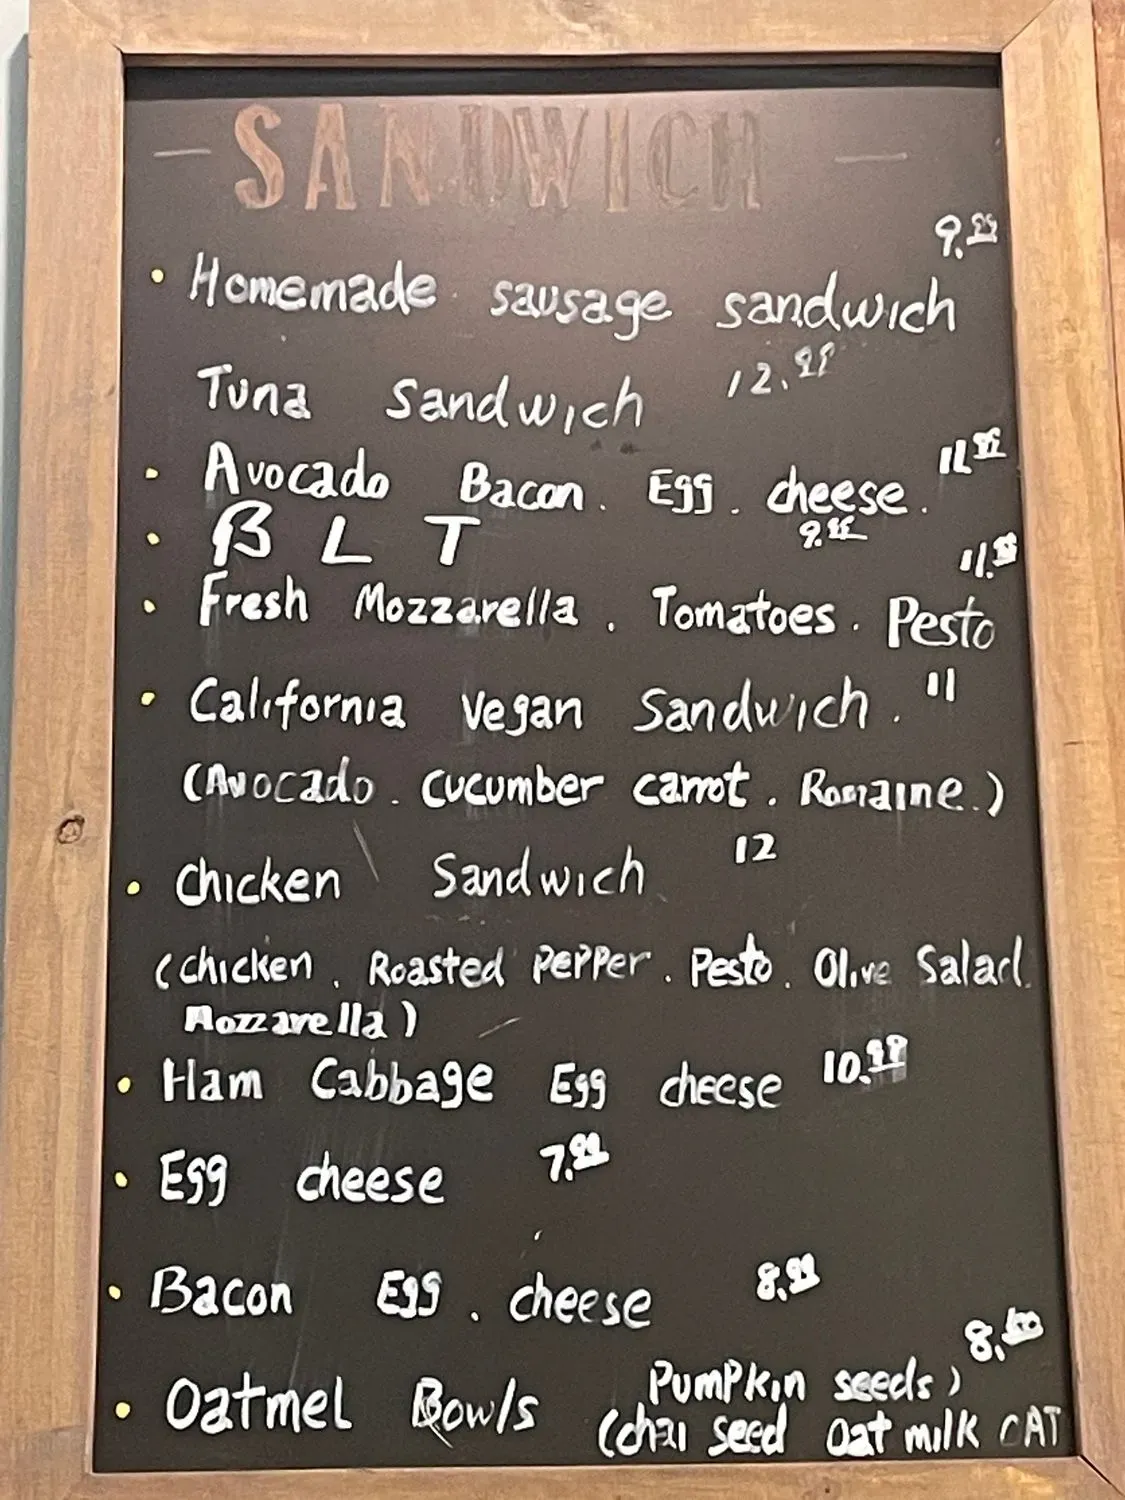 - SANDWICH -
9.99
• Homemade sausage sandwich
Tuna Sandwich 12.99
• Avocado Bacon. Egg. cheese.
• B L T
• Fresh Mozzarella. Tomatoes. Pesto
• California Vegan Sandwich. 11
(Avocado. cucumber carrot. Romaine.)
• Chicken Sandwich 12
(chicken. Roasted PePPer. Pesto. Olive Salad.
Mozzarella)
• Ham Cabbage Egg cheese 10.99
• Egg cheese 7.99
• Bacon Egg. cheese 8.99
Pumpkin seeds)
• Oatmel Bowls (chai seed Oat milk OAT